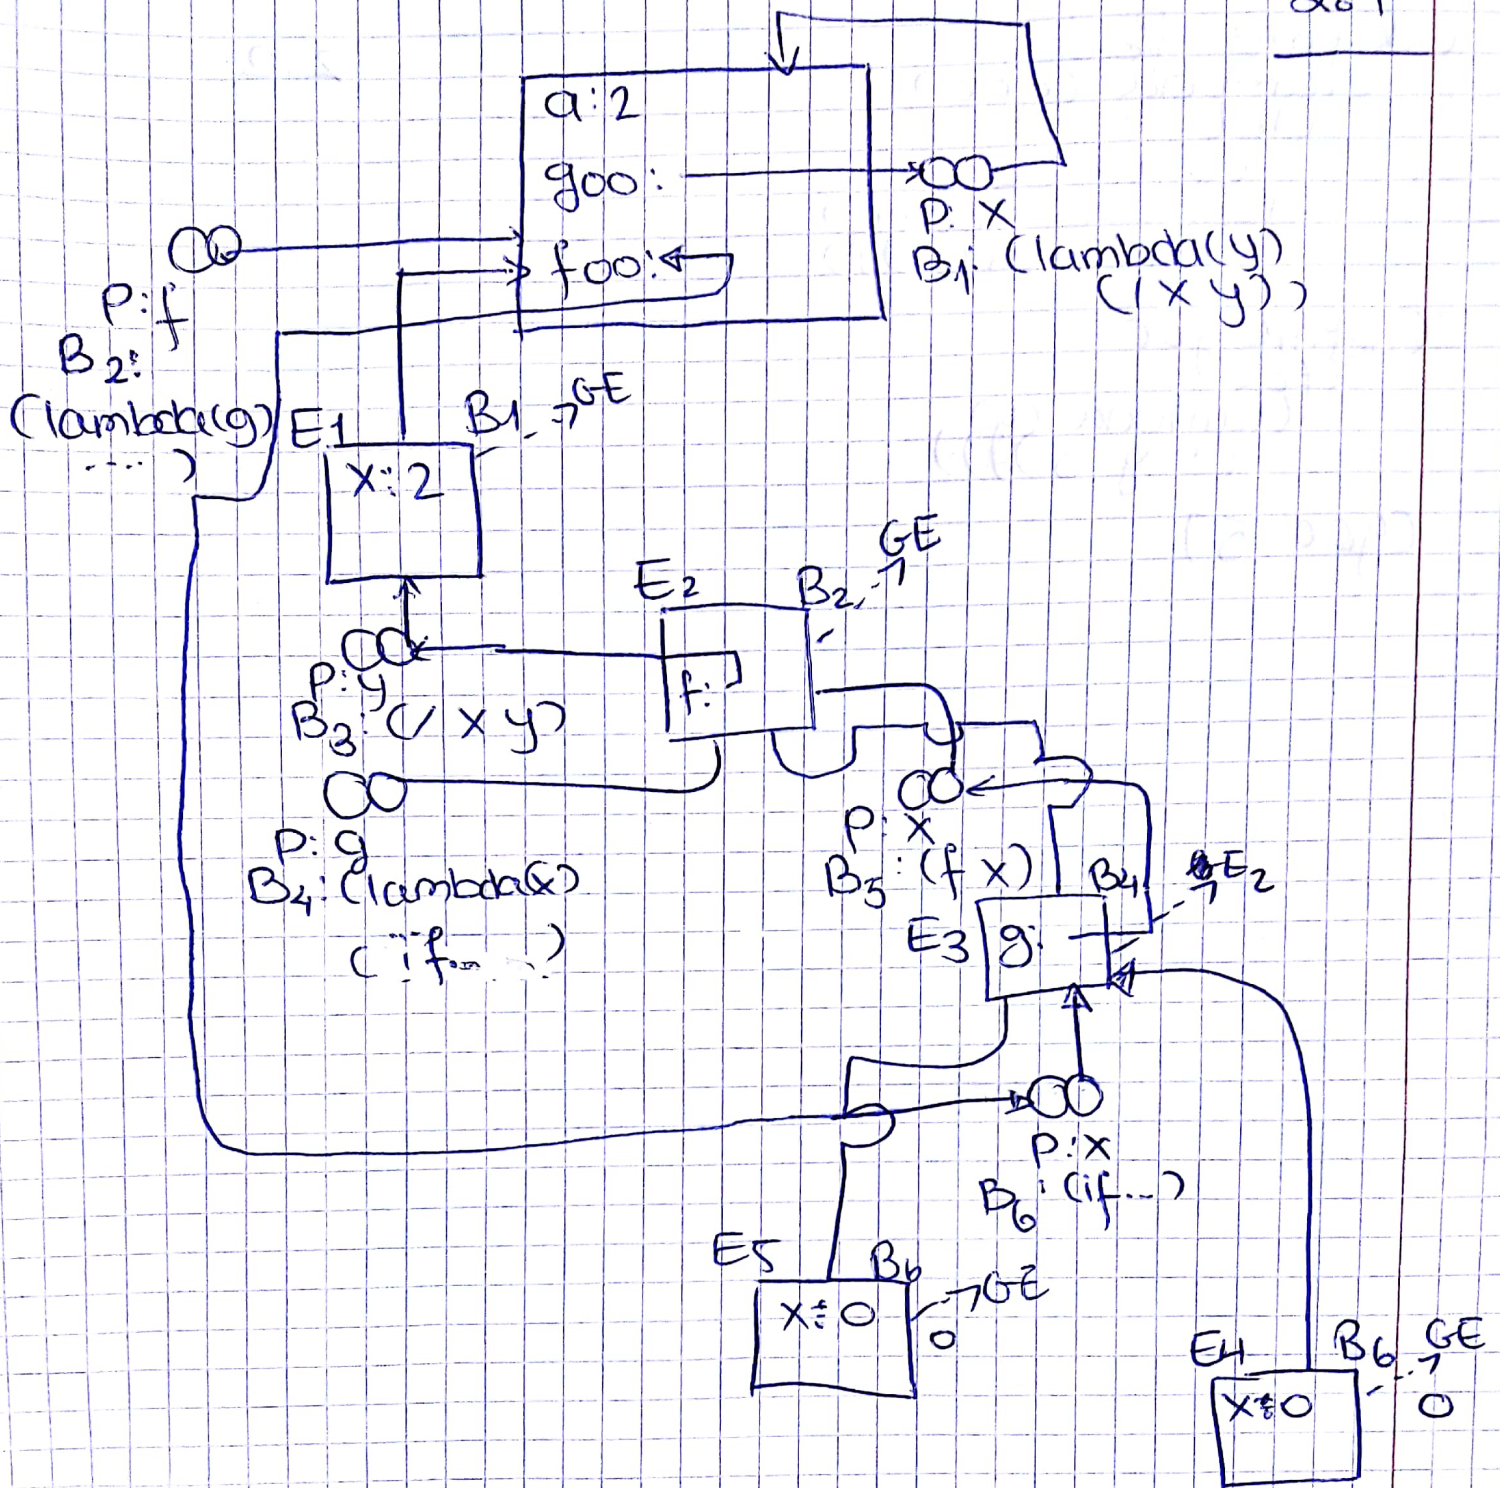 a:2
goo:
P: x
B1: (lambda(y)
(/ x y))
foo:
P:f
B2:
(lambda(g)
....)
E1
B1 GE
x:2
GE
E2
B2
f:
P:y
B3:(/ x y)
P:g
B4:(lambda(x)
(if.....)
P:x
B5:(f x)
B4
E2
E3
g:
P:x
B6:(if...)
E5
B6
GE
x:0
0
E4
B6
GE
x:0
0